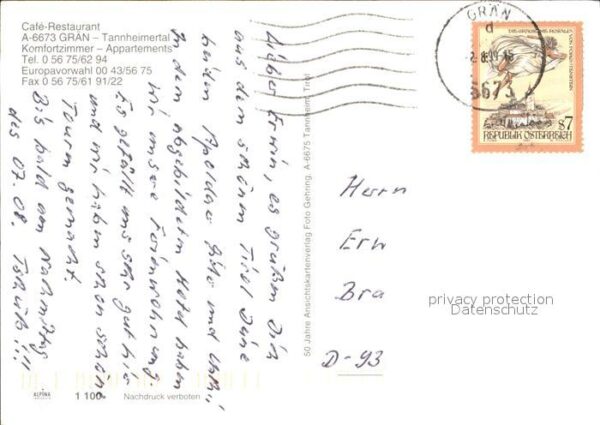 Café-Restaurant
A-6673 GRÄN – Tannheimertal
Komfortzimmer – Appartements
Tel. 0 56 75/62 94
Europavorwahl 00 43/56 75
Fax 0 56 75/61 91/22
Lieber Erwin, es grüßen Dich
aus dem schönen Tirol Deine
beiden und
In dem abgebildeten Hotel haben
wir unsere Ferienwohnung.
Es gefällt uns sehr gut hier
und wir haben schon schöne
Touren gemacht.
Bis bald am Nachmittag
des 07.08. Tschüß!!!
50 Jahre Ansichtskartenverlag Foto Gehring, A-6675 Tannheim, Tirol
GRÄN
d
6673
REPUBLIK ÖSTERREICH
S7
Herrn
Erw
Bra
D-93
privacy protection
Datenschutz
ALPINA
1 100
Nachdruck verboten